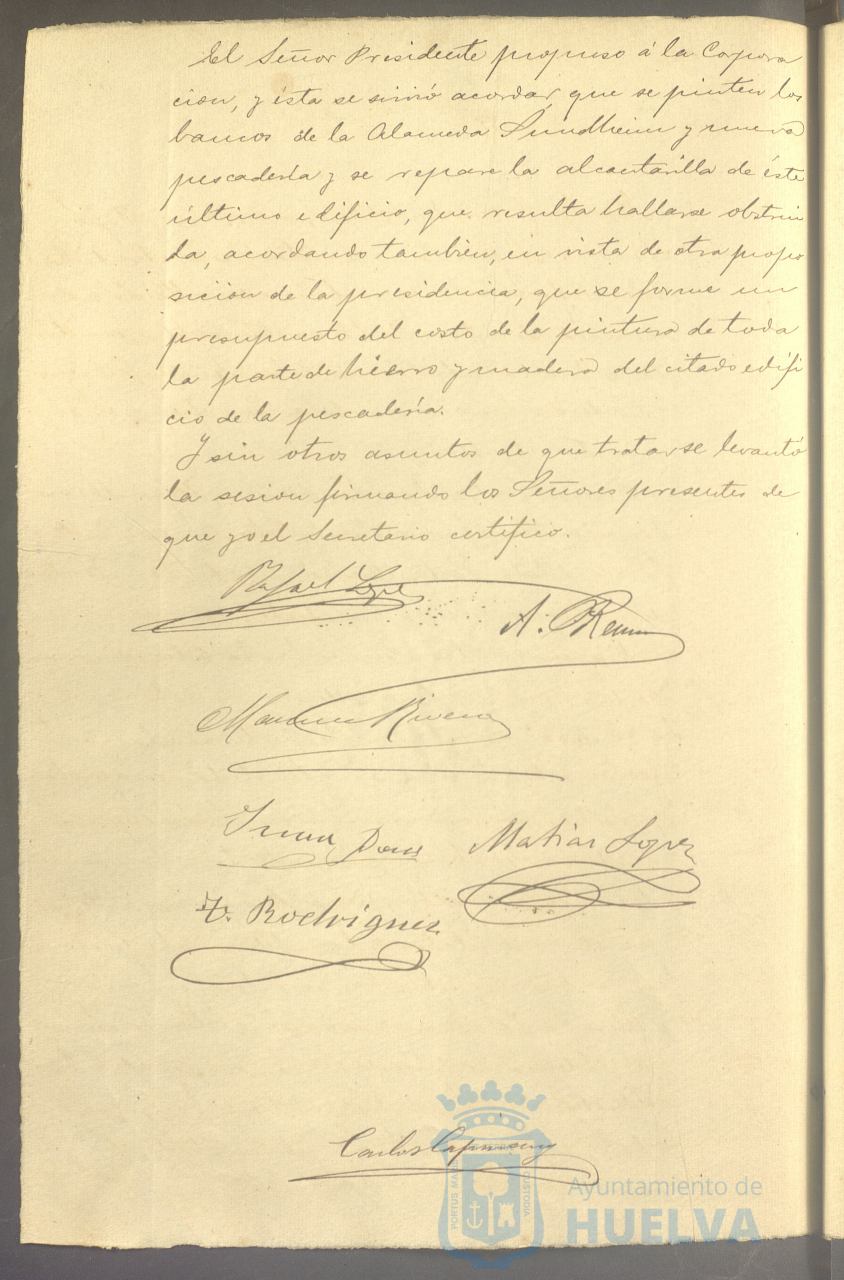 El Señor Presidente propuso á la Corpora
cion, y ésta se sirvió acordar, que se pinten los
bancos de la Alameda Sundheim y nueva
pescadería y se repare la alcantarilla de éste
último edificio, que resulta hallarse obstrui
da, acordando también, en vista de otra propo
sicion de la presidencia, que se forme un
presupuesto del costo de la pintura de toda
la parte de hierro y madera del citado edifi
cio de la pescadería.
Y sin otros asuntos de que tratar se levantó
la sesion firmando los Señores presentes de
que yo el Secretario certifico.
Rafael Lopez
A.
Rivera
Juan Matias Lopez
Rodriguez
Carlos
PORTUS MARIS CUSTODIA
Ayuntamiento de
HUELVA